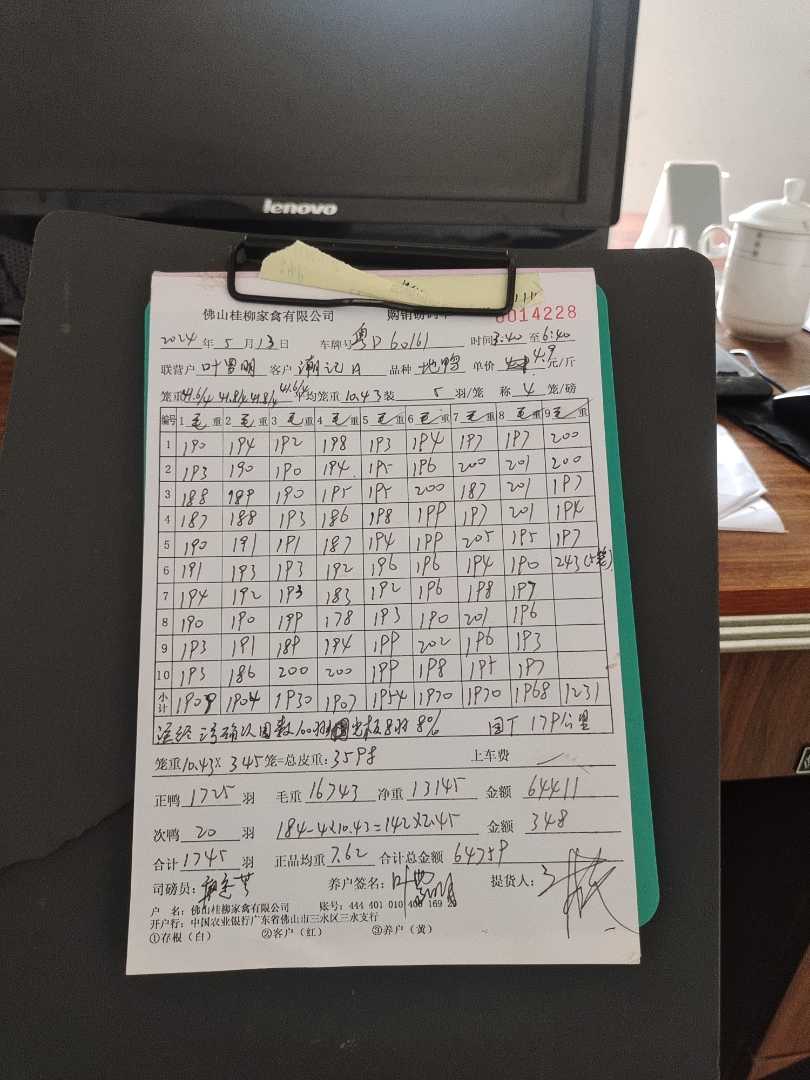 lenovo
佛山桂柳家禽有限公司 购销磅码单
0014228
2024年 5月13日 车牌号 粤D60161 时间3:40至6:40
联营户 叶男明 客户 潮记A 品种 地鸭 单价 4.9 元/斤
笼重41.6/4 41.8/4 41.8/4 41.6/4 平均笼重10.43装 5 羽/笼 称 4 笼/磅
编号 1毛重 2毛重 3毛重 4毛重 5毛重 6毛重 7毛重 8毛重 9毛重
1 190 194 192 198 193 194 197 197 200
2 193 190 190 194 195 196 200 201 200
3 188 189 190 195 195 200 187 201 197
4 187 188 193 186 198 199 197 201 194
5 190 191 191 187 194 199 205 195 197
6 191 193 193 192 196 196 194 190 243(5笼)
7 194 192 193 183 192 196 198 197
8 190 190 199 178 193 190 201 196
9 193 191 189 194 199 202 196 193
10 193 186 200 200 199 198 195 197
小计 1909 1904 1930 1907 1954 1970 1970 1968 1231
8羽 8% 179公里
笼重10.43× 345笼=总皮重:3598 上车费
正鸭 1725 羽 毛重 16743 净重 13145 金额 64411
次鸭 20 羽 184-4×10.43=142×2.45 金额 348
合计1745 羽 正品均重 7.62 合计总金额 64759
司磅员: 养户签名: 提货人:
户 名:佛山桂柳家禽有限公司 账号:444 401 010 400 169 20
开户行:中国农业银行广东省佛山市三水区三水支行
①存根(白) ②客户(红) ③养户(黄)